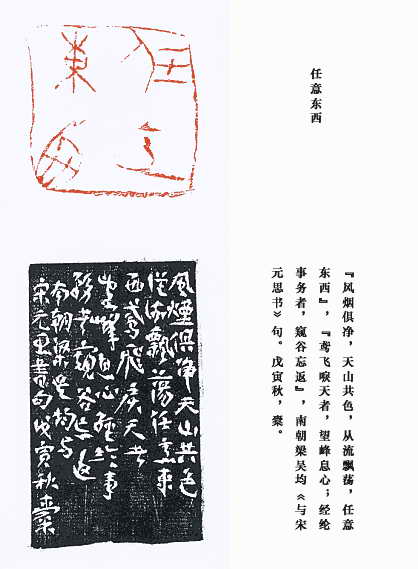 任意
東西
任意东西
風煙俱净天山共色
從流飄蕩任意東
西鳶飛唳天者
望峰息心經綸事
務者窺谷忘返
南朝梁吴均与
宋元思書句戊寅秋橐
『风烟俱净，天山共色，从流飘荡，任意
东西』，『鸢飞唳天者，望峰息心；经纶
事务者，窥谷忘返』，南朝梁吴均《与宋
元思书》句。戊寅秋，橐。